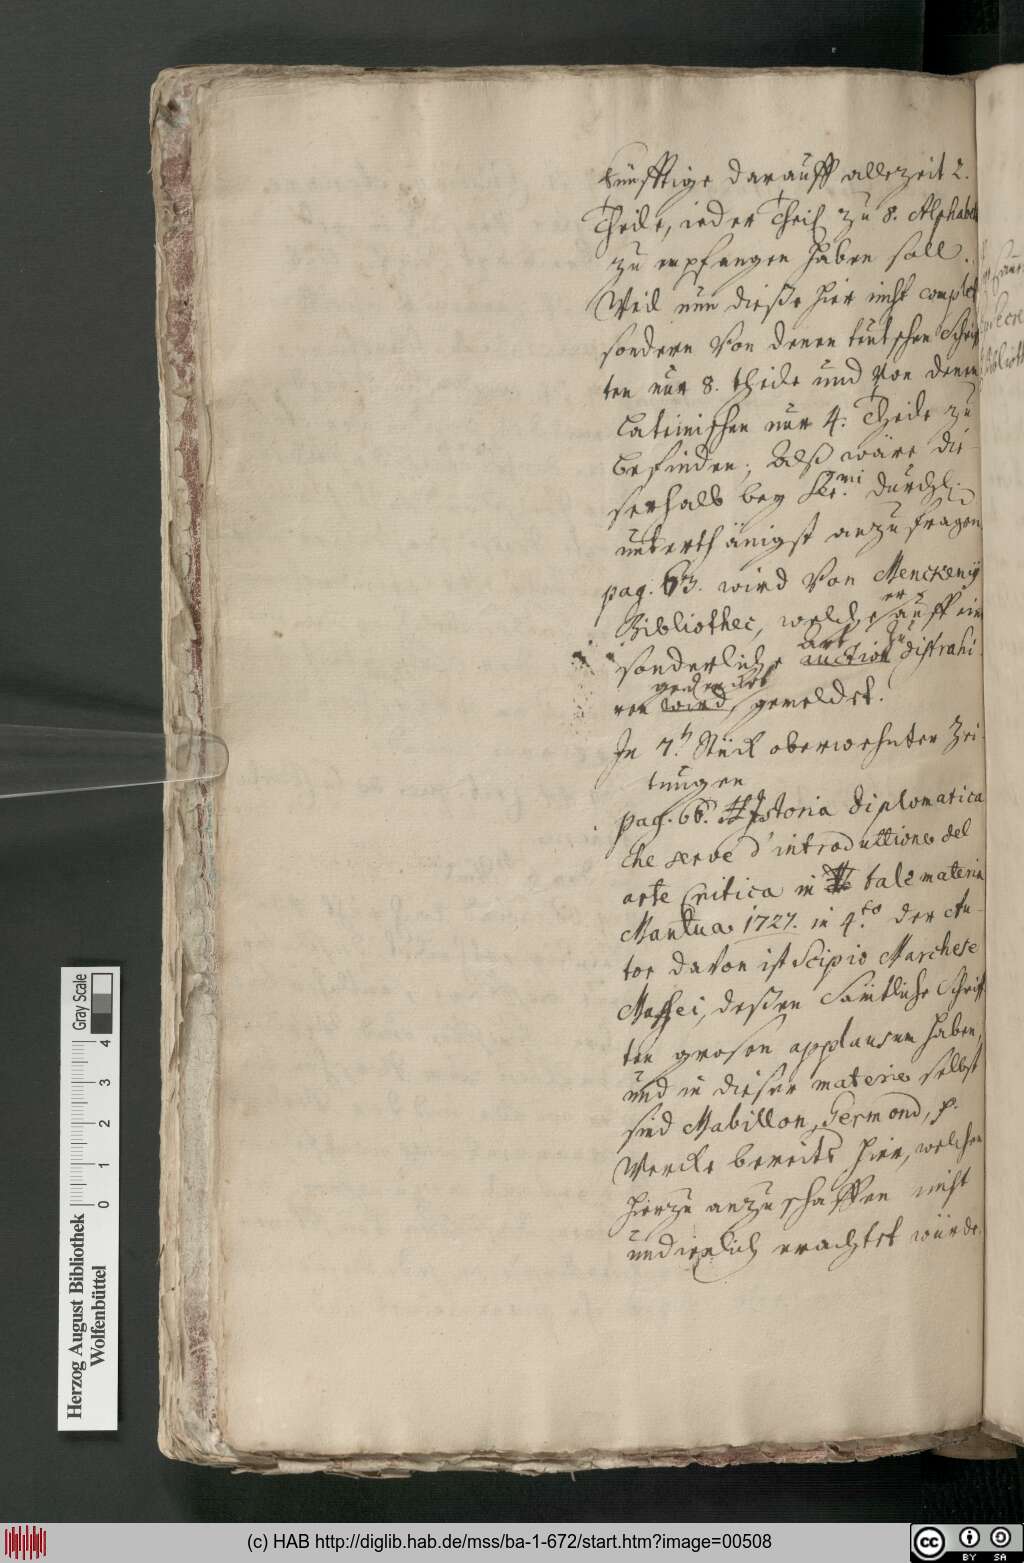 künfftige darauff allezeit 2.
Theile, ieder Theil zu 8. Alphabet
zu empfangen haben soll.
Weil nun dieße hier nicht complet
sondern von denen teutschen Schrif
ten nur 8. theile und von denen
Lateinischen nur 4. Theile zu
befinden; Alß wäre die-
serhalb bey Ser.mi Durchl.
unterthänigst anzufragen
pag. 63. wird von Menckenij
Bibliothec, welche er auff ein
sonderliche Art auction zu distrahi-
ren gedencket wird, gemeldet.
In 7.h Stück oberwehnter Zei-
tungen
pag. 66. Istoria Diplomatica
che serve d'introduttione del
arte Critica in tale materia
Mantua 1727. in 4.to der Au-
tor davon ist Scipio Marchese
Maffei, deßen Sämtliche Schriff
ten grosen applausum haben,
und in dieser materie selbst
sind Mabillon, Germond, p.
Wercke bereits hier, welchen
hierzu anzuschaffen nicht
undienlich erachtet würde.
Gray Scale
0 1 2 3 4
Herzog August Bibliothek
Wolfenbüttel
(c) HAB http://diglib.hab.de/mss/ba-1-672/start.htm?image=00508
cc BY SA